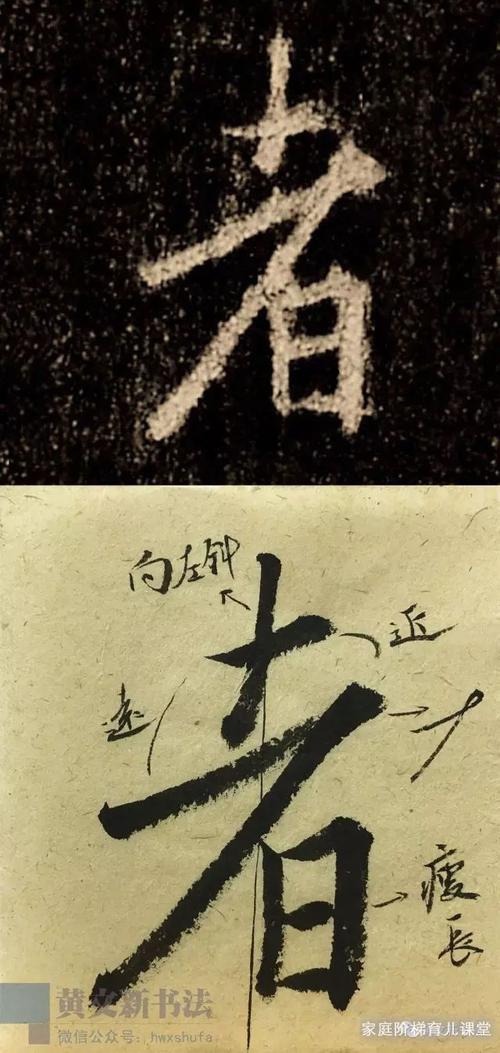 者
向左斜
者
近
远
瘦长
黄文新书法
微信公众号: hwxshufa
家庭阶梯育儿课堂